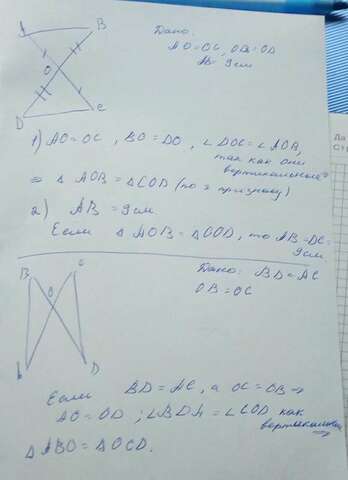 A
B
O
D
C
Дано:
AO = OC, OB = OD
AB = 9 см
1) AO = OC, BO = DO, ∠ DOC = ∠ AOB,
так как они
вертикальные
⇒ Δ AOB = Δ COD (по признаку)
2) AB = 9 см
Если Δ AOB = Δ COD, то AB = DC =
9 см.
B
C
O
D
Дано: BD = AC
OB = OC
Если BD = AC, а OC = OB ⇒
AO = OD; ∠ BDA = ∠ COD как
Δ ABO = Δ OCD.